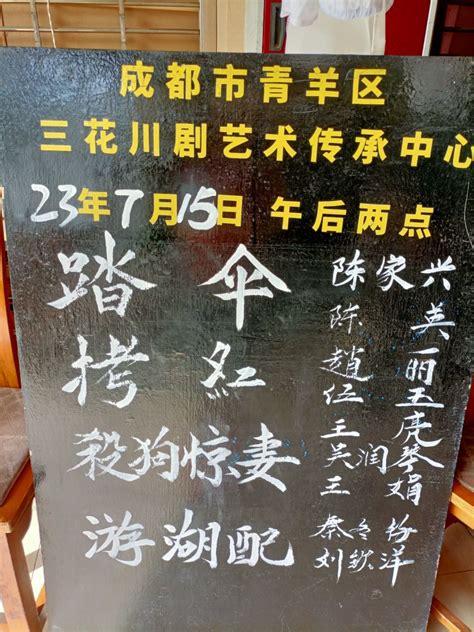 成都市青羊区
三花川剧艺术传承中心
23年7月15日 午后两点
踏伞
拷紅
殺狗惊妻
游湖配
陈家兴
陈英
趙丽
伍玉
王虎
吴润琴
王娟
秦冬粉
刘欽洋